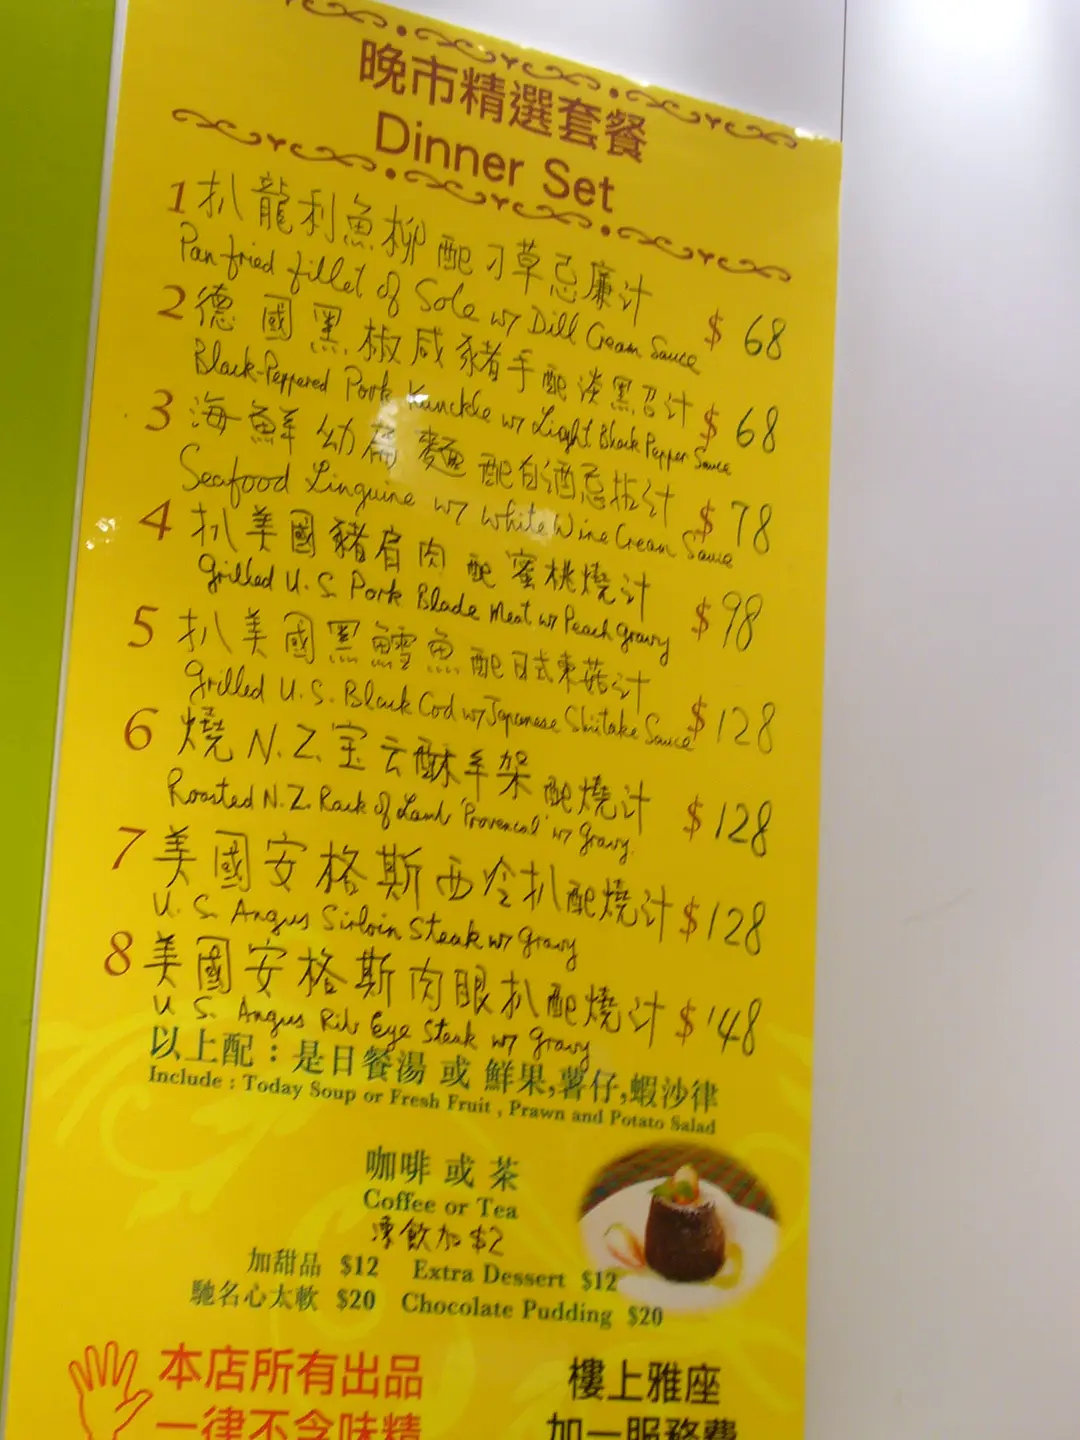 晚市精選套餐
Dinner Set
1 扒龍利魚柳配刁草忌廉汁 $ 68
Pan fried fillet of Sole w/ Dill Cream Sauce
2 德國黑椒咸豬手配淡黑召汁 $ 68
Black-Peppered Pork Kunckle w/ Light Black Pepper Sauce
3 海鮮幼扁麵配白酒忌拈汁 $ 78
Seafood Linguine w/ White Wine Cream Sauce
4 扒美國豬肩肉配蜜桃燒汁 $ 98
Grilled U.S. Pork Blade Meat w/ Peach Gravy
5 扒美國黑鱈魚配日式東菇汁 $ 128
Grilled U.S. Black Cod w/ Japanese Shiitake Sauce
6 燒N.Z.宝云酥羊架配燒汁 $ 128
Roasted N.Z. Rack of Lamb 'Provencal' w/ Gravy.
7 美國安格斯西冷扒配燒汁 $ 128
U.S. Angus Sirloin Steak w/ Gravy
8 美國安格斯肉眼扒配燒汁 $ 148
U.S. Angus Rib Eye Steak w/ Gravy
以上配：是日餐湯 或 鮮果,薯仔,蝦沙律
Include : Today Soup or Fresh Fruit , Prawn and Potato Salad
咖啡 或 茶
Coffee or Tea
凍飲加$2
加甜品 $12 Extra Dessert $12
馳名心太軟 $20 Chocolate Pudding $20
本店所有出品 樓上雅座
一律不含味精 加一服務費